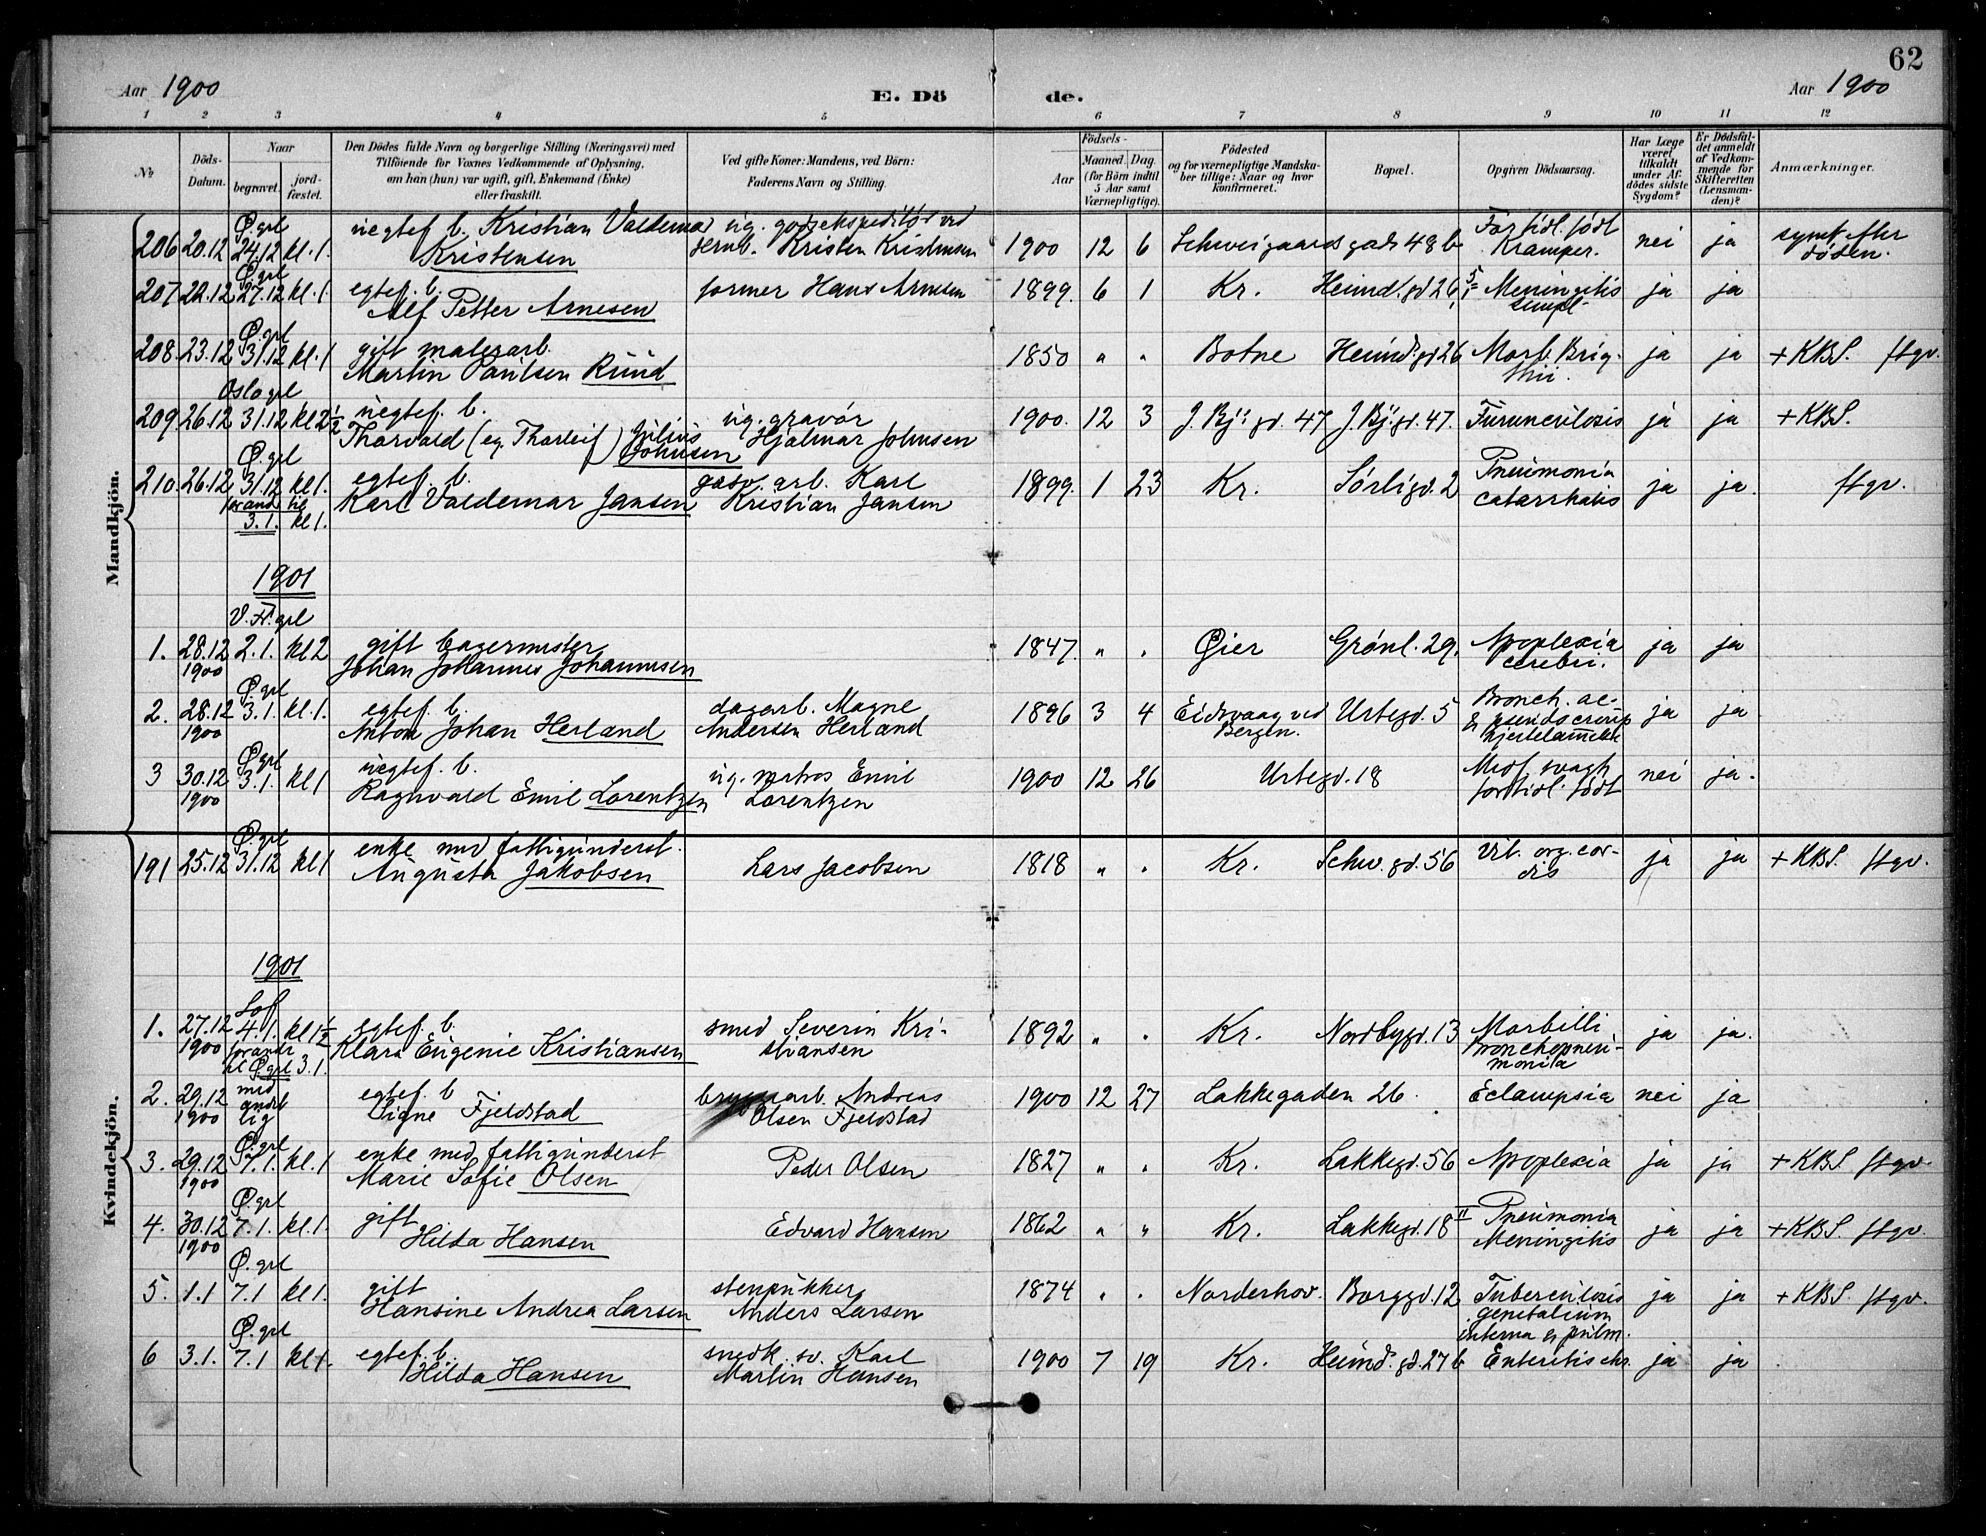 62
Aar 1900
E. Dö
de.
Aar 1900
1 2 3 4 5 6 7 8 9 10 11 12
No
Döds-Datum.
Naar
begravet.
jord-fæstet.
Den Dödes fulde Navn og borgerlige Stilling (Næringsvei) med
Tilföiende for Voxnes Vedkommende af Oplysning,
om han (hun) var ugift, gift, Enkemand (Enke)
eller fraskilt.
Ved gifte Koner: Mandens, ved Börn:
Faderens Navn og Stilling.
Födsels-
Aar
Maaned. Dag.
(for Börn indtil
5 Aar samt
Værnepligtige).
Födested
og for værnepligtige Mandska-
ber tillige: Naar og hvor
konfirmeret.
Bopæl.
Opgiven Dödsaarsag.
Har Læge
været
tilkaldt
under Af-
dödes sidste
Sygdom?
Er Dödsfal-
det anmeldt
af Vedkom-
mende for
Skifteretten
(Lensman-
den)?
Anmærkninger.
Mandkjön.
Ø. grl uegtef. b. Kristian Valdemar ug. godsekspeditør ved Fortidl. født
206 20.12 24.12 kl. 1. Kristensen jernb. Kristen Kristensen 1900 12 6 Schweigaards gade 48 b Kramper. nei ja symf. efter døden.
Ø. grl
207 22.12 27.12 kl. 1 egtef. b. former Hans Arnesen 1899. 6 1 Kr. Heimd. gd 26 Meningitis ja ja
Alf Petter Arnesen simpl.
Ø. grl
208. 23.12 31.12 kl. 1 gift malerarb. 1850 " " Botne Heimd. gd 26 Morb. Brig- ja ja + KBS. ftgv.
Martin Paulsen Ruud thii.
Oslo grl
209 26.12 31.12 kl 2 1/2 uegtef. b. ug. gravør 1900. 12 3 J. Bj: gd. 47 J. Bj. gd. 47. Furunculosis ja ja + KBS.
Thorvald (eg. Thorleif) Julius Johnsen Hjalmar Johnsen
Ø. grl
210. 26.12 31.12 kl 1. egtef. b. gasv. arb. Karl 1899. 1 23 Kr. Sørligd. 2 Pneumonia ja ja. ftgv.
forandr. til Karl Valdemar Jansen Kristian Jansen catarrhalis
3.1. kl 1.
1901
V. Fr. grl
1. 28.12 2.1. kl 2 gift bagermester 1847. " " Øier Grønl. 29. Apoplexia ja ja
1900 Johan Johannes Johannesen cerebri.
Ø. grl
2. 28.12 3.1. kl. 1. egtef. b. dagarb. Magne 1896 3 4 Eidsvaag ved Urtegd. 5 Bronch. ac- ja ja
1900 Anton Johan Herland Andersen Herland Bergen. & pseudocroup
Ø. grl
3 30.12 3.1. kl 1 uegtef. b. ug. matros Emil 1900 12 26 Urtegd. 18 Medf. svagh. nei ja.
1900 Ragnvald Emil Lorentzen Lorentzen fortidl. født
Ø. grl
191 25.12 31.12 kl 1 enke med fattigunderst. Lars Jacobsen 1818 " " Kr. Schw. gd. 56 Vit. org. cor- ja ja + KBS. ftgv.
Augusta Jakobsen dis
Kvindekjön.
1901
Sof
1. 27.12 4.1. kl 1 1/2 egtef. b. smed Severin Kri- 1892 " " Kr. Nordbygd. 13 Morbilli ja ja.
1900 forandr. Klara Eugenie Kristiansen stiansen bronchopneu-
til Ø. grl 3.1. monia
2. 29.12 med egtef. b bryggarb. Andreas 1900 12 27 Lakkegaden 26. Eclampsia nei ja
1900 andet lig Signe Fjeldstad Olsen Fjeldstad
Ø. grl
3. 29.12 7.1. kl. 1 enke med fattigunderst Peder Olsen 1827 " " Kr. Lakkegd. 56 Apoplexia ja ja + KBS. ftgv.
1900 Marie Sofie Olsen
Ø. grl
4. 30.12 7.1. kl. 1. gift Edvard Hansen 1862 " " Kr. Lakkegd. 18 II Pneumonia ja ja + KBS. ftgv.
1900 Hilda Hansen Meningitis
Ø. grl
5. 1.1 7.1 kl 1. gift stenpukker 1874 " " Norderhov. Borggd. 12 Tuberculosis ja ja + KBS. ftgv.
Hansine Andrea Larsen Anders Larsen genitalium
Ø. grl interna & pulm.
6 3.1. 7.1 kl 1. egtef. b. snedk. sv. Karl 1900 7 19 Kr. Heimd. gd. 27 b Enteritis chr. ja ja
Hilda Hansen Martin Hansen